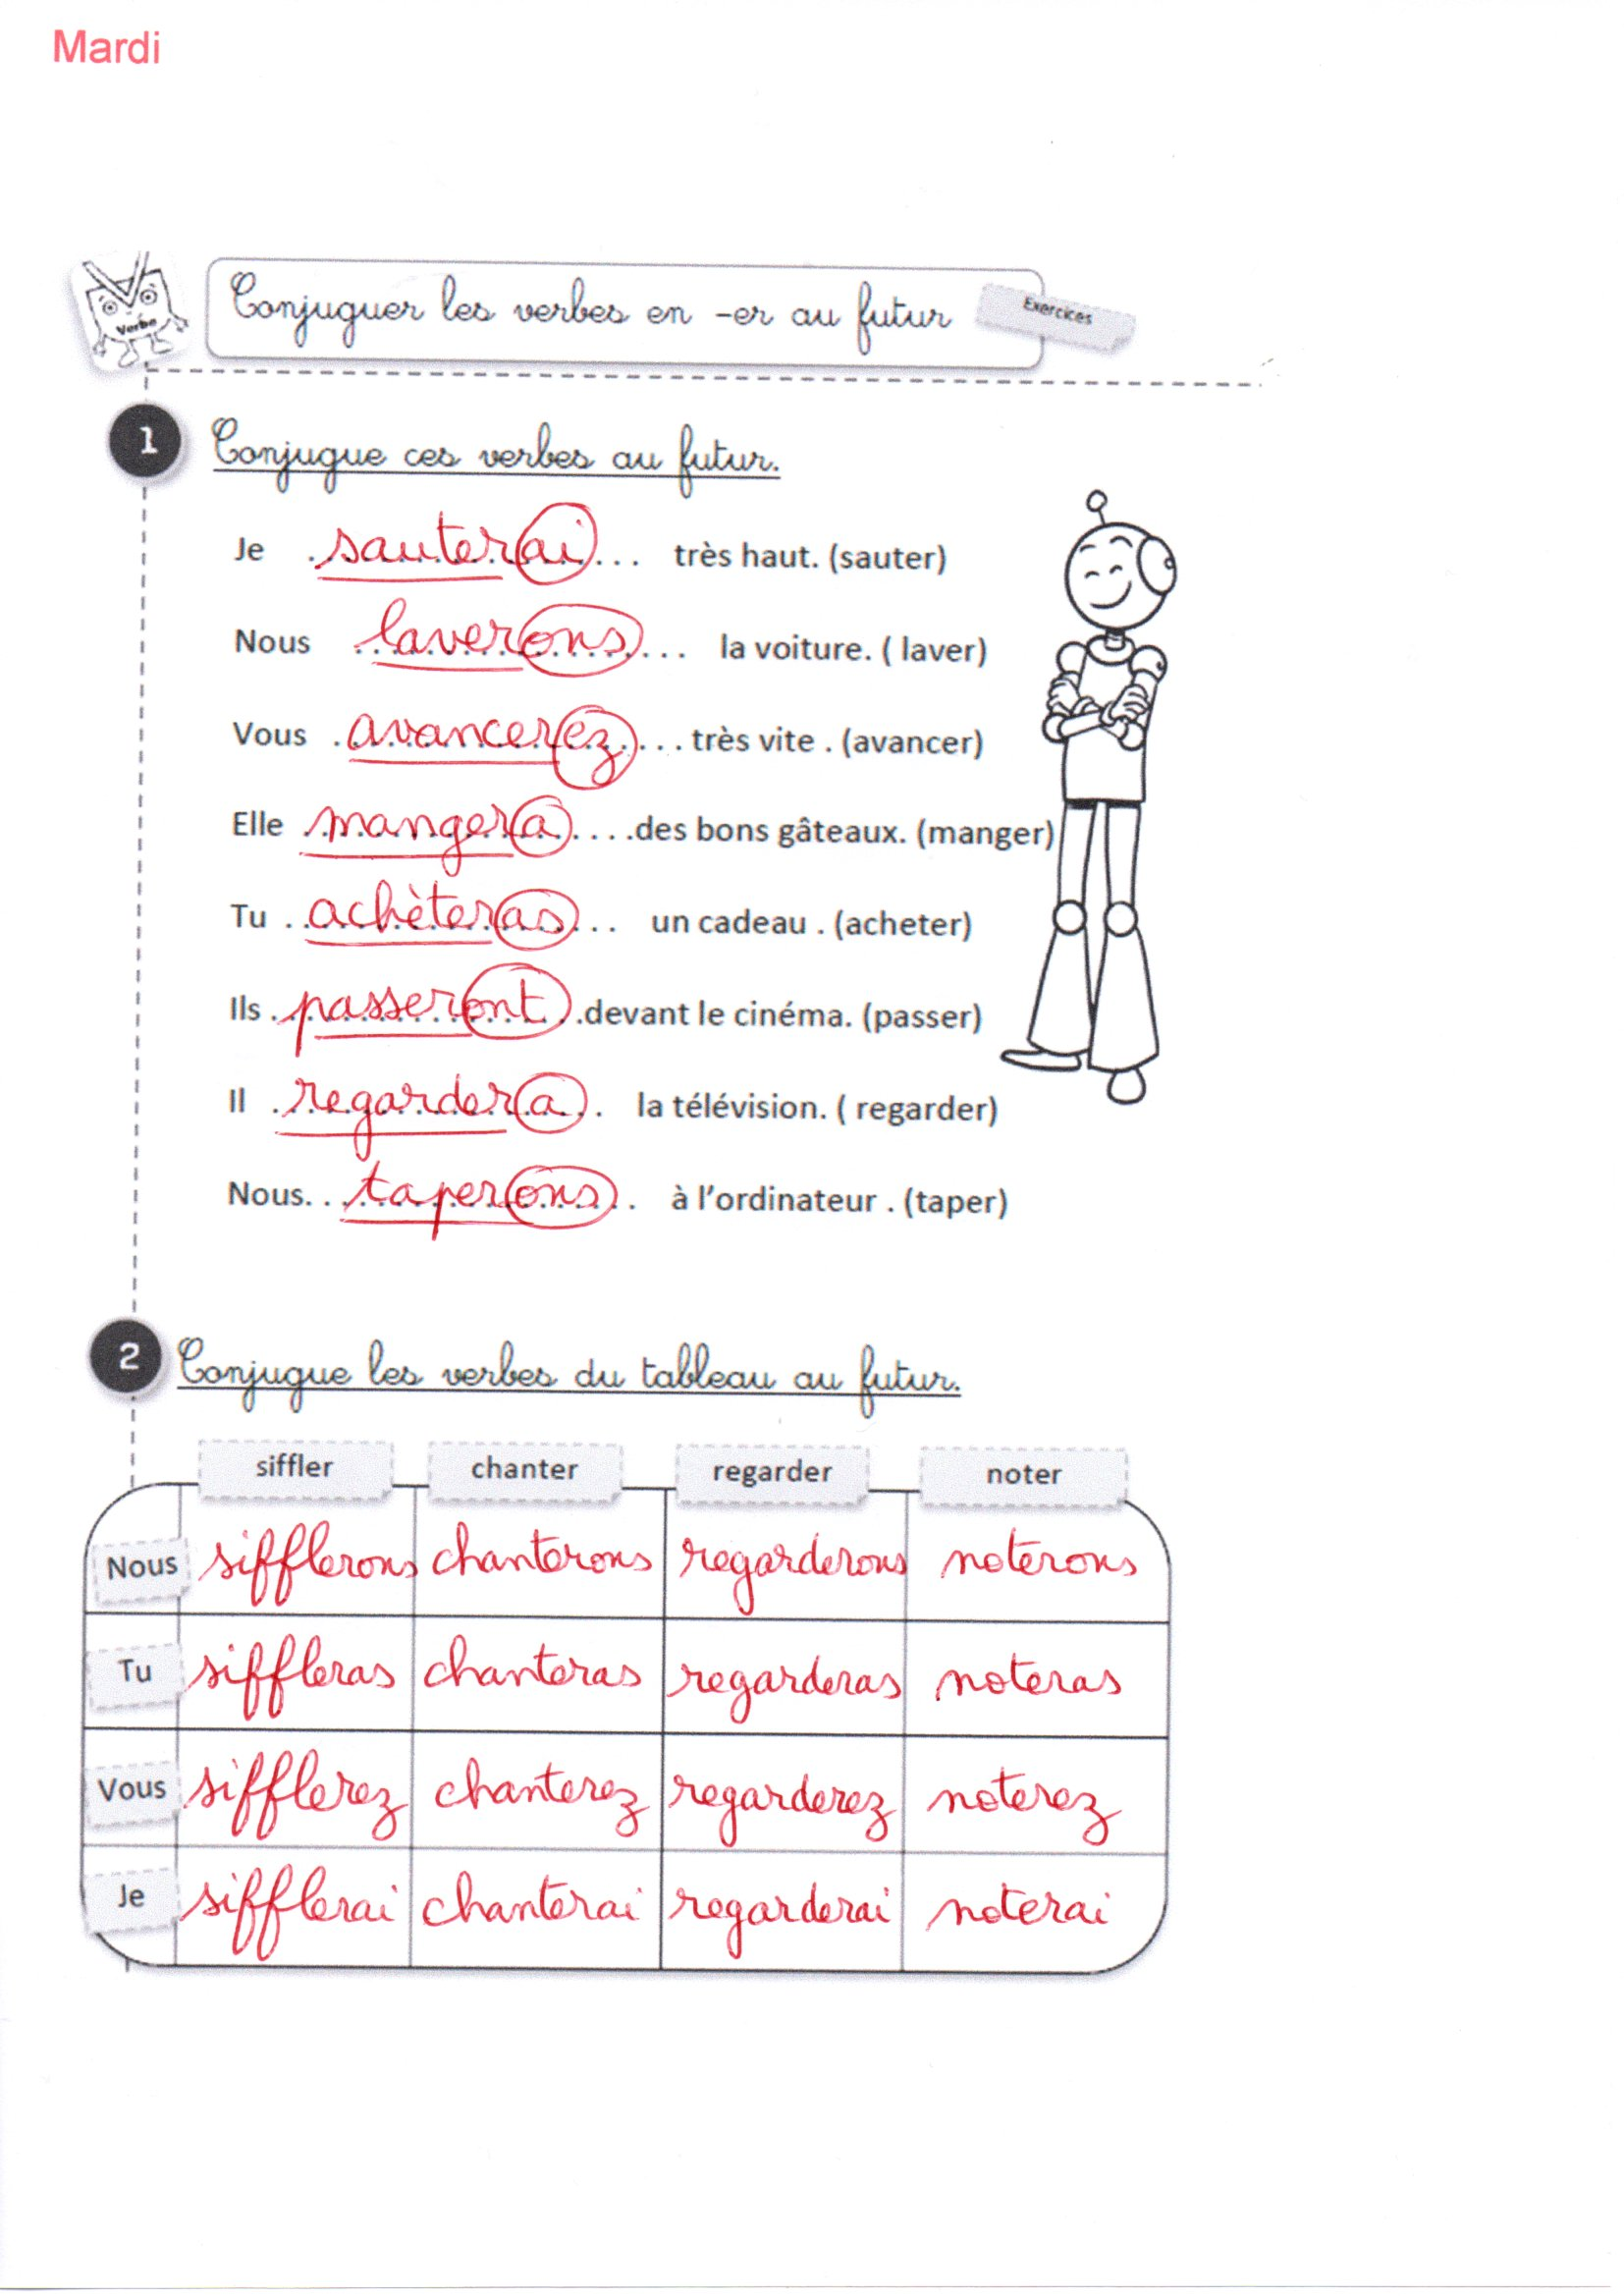 Mardi
Verbe
Conjuguer les verbes en -er au futur
Exercices
1
Conjugue ces verbes au futur.
Je sauterai très haut. (sauter)
Nous laverons la voiture. ( laver)
Vous avancerez très vite . (avancer)
Elle mangera des bons gâteaux. (manger)
Tu achèteras un cadeau . (acheter)
Ils passeront devant le cinéma. (passer)
Il regardera la télévision. ( regarder)
Nous taperons à l'ordinateur . (taper)
2
Conjugue les verbes du tableau au futur.
siffler chanter regarder noter
Nous sifflerons chanterons regarderons noterons
Tu siffleras chanteras regarderas noteras
Vous sifflerez chanterez regarderez noterez
Je sifflerai chanterai regarderai noterai